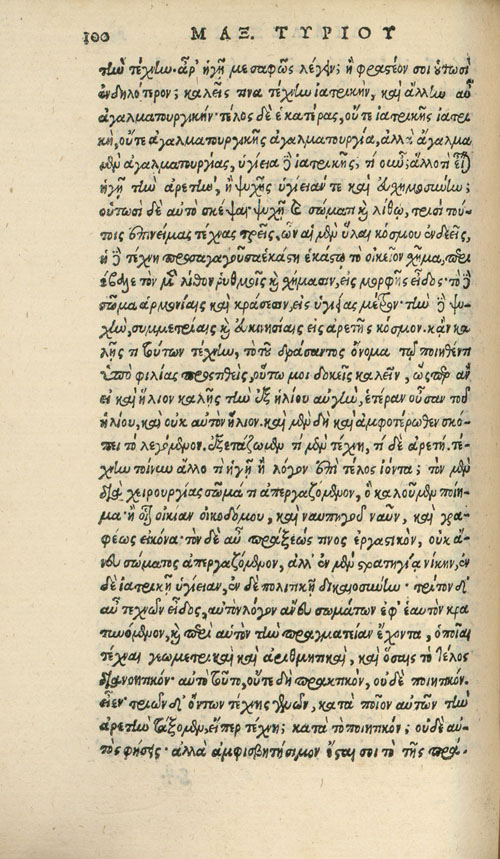 100 ΜΑΞ. ΤΥΡΙΟΥ
τὴν τέχνην. ἆρ' ἡγῇ με σαφῶς λέγειν; ἢ φραστέον σοι οὑτωσὶ
ἐνδηλότερον; καλεῖς τινα τέχνην ἰατρικὴν, καὶ ἄλλην αὖ
ἀγαλματουργικήν· τέλος δὲ ἑκατέρας, οὔτε ἰατρικῆς ἰατρι
κὴ, οὔτε ἀγαλματουργικῆς ἀγαλματουργία, ἀλλὰ ἄγαλμα
μὲν ἀγαλματουργίας, ὑγίεια δὲ ἰατρικῆς, τί οὖν; ἄλλό τι εἶναι
ἡγῇ τὴν ἀρετὴν, ἢ ψυχῆς ὑγίειάν τε καὶ εὐσχημοσύνην;
οὑτωσὶ δὲ αὐτὸ σκέψαι· ψυχῇ καὶ σώματι καὶ λίθῳ, τρισὶ τού-
τοις ἐπίνειμας τέχνας τρεῖς, ὧν αἱ μὲν ὗλαι κόσμου ἐνδεεῖς,
ἡ δὲ τέχνη προσαγαγοῦσα ἑκάστη ἑκάστῳ τὸ οἰκεῖον σχῆμα, περι
έβαλε τὸν μὲν λίθον ῥυθμοῖς καὶ σχήμασιν, εἰς μορφῆς εἶδος· τὸ δὲ
σῶμα ἁρμονίαις καὶ κράσεσιν, εἰς ὑγιείας μέτρον· τὴν δὲ ψυ-
χὴν, συμμετρίαις καὶ εὐκινησίαις εἰς ἀρετῆς κόσμον. κἂν κα
λῇς τι τούτων τέχνην, τὸ τοῦ δράσαντος ὄνομα τῷ ποιηθέντι
ὑπὸ φιλίας προςτιθεὶς, οὕτω μοι δοκεῖς καλεῖν, ὥςπερ ἂν
εἰ καὶ ἥλιον καλῇς τὴν ἐξ ἡλίου αὐγὴν, ἑτέραν οὖσαν τοῦ
ἡλίου, καὶ οὐκ αὐτὸν ἥλιον. καὶ μὲν δὴ καὶ ἀμφοτέρωθεν σκό-
πει τὸ λεγόμενον. ἐξετάζωμεν τί μὲν τέχνη, τί δὲ ἀρετή. τέ-
χνην τοίνυν ἄλλο τι ἡγῇ ἢ λόγον ἐπὶ τέλος ἰόντα; τὸν μὲν
διὰ χειρουργίας σῶμά τι ἀπεργαζόμενον, ὃ καλοῦμεν ποίη-
μα· ἢ οἷον οἰκίαν οἰκοδόμου, καὶ ναυπηγοῦ ναῦν, καὶ γρα-
φέως εἰκόνα· τὸν δὲ αὖ πράξεώς τινος ἐργαστικὸν, οὐκ ἄ-
νευ σώματος ἀπεργαζόμενον, ἀλλ' ἐν μὲν στρατηγίᾳ νίκην, ἐν
δὲ ἰατρικῇ ὑγίειαν, ἐν δὲ πολιτικῇ δικαιοσύνην· τρίτον δ'
αὖ τεχνῶν εἶδος, αὐτὸν λόγον ἄνευ σωμάτων ἐφ' ἑαυτὸν κρα
τυνόμενον, καὶ περὶ αὑτὸν τὴν πραγματείαν ἔχοντα, ὁποῖαι
τέχναι γεωμετρικαὶ καὶ ἀριθμητικαὶ, καὶ ὅσαις τὸ τέλος
διανοητικόν· αὐτὸ τοῦτο, οὔτε δὴ πρακτικὸν, οὐδὲ ποιητικόν.
εἶεν· τριῶν δ' ὄντων τέχνης γενῶν, κατὰ ποῖον αὐτῶν τὴν
ἀρετὴν τάξομεν, εἴπερ τέχνη; κατὰ τὸ ποιητικόν; οὐδὲ αὐ-
τὸς φήσεις· ἀλλὰ ἀμφισβητήσιμον ἔσται σοι τὸ τῆς πρά-